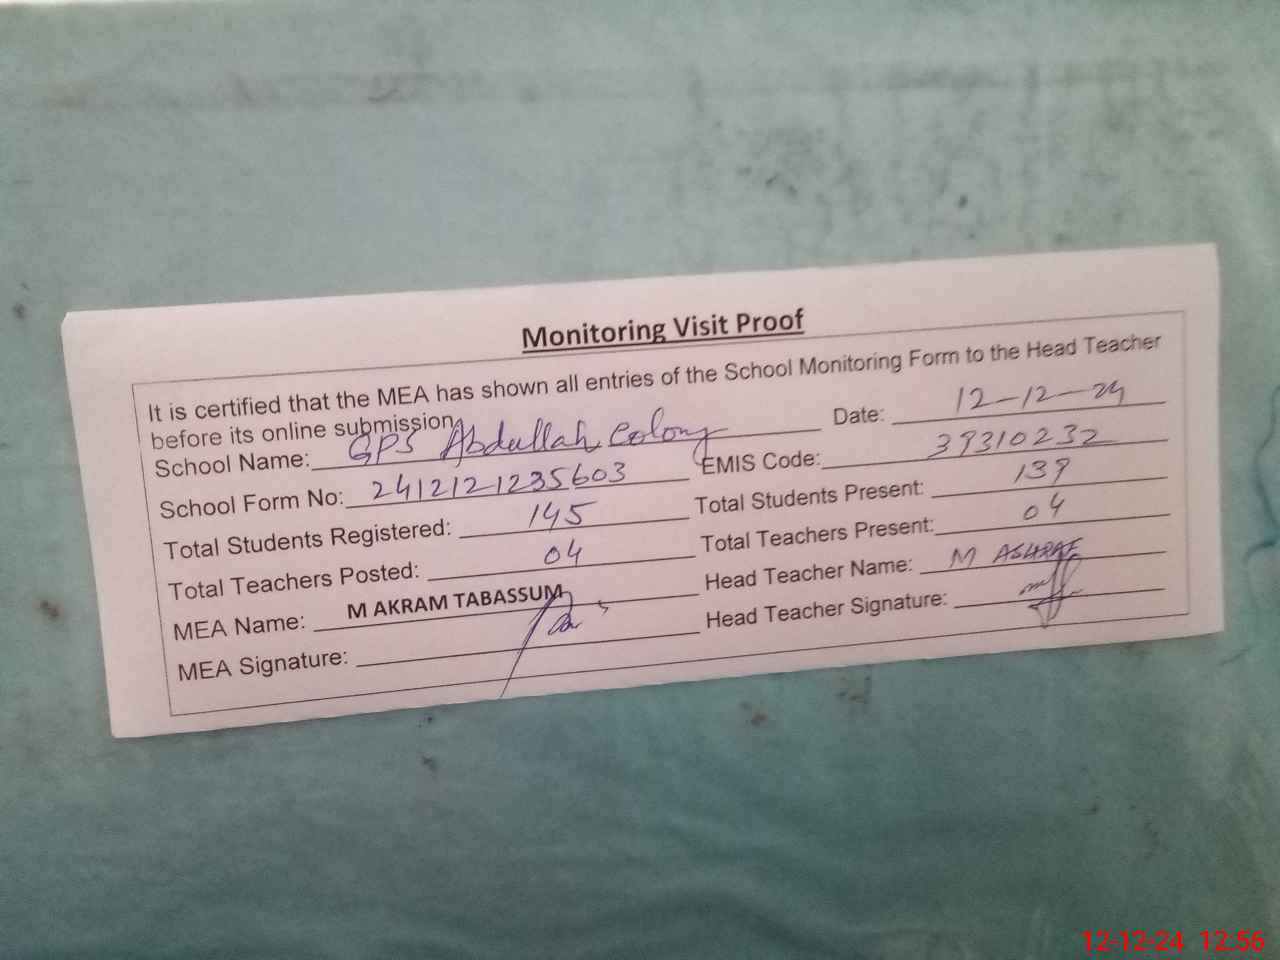 Monitoring Visit Proof
It is certified that the MEA has shown all entries of the School Monitoring Form to the Head Teacher
before its online submission.
School Name: GPS Abdullah Colony Date: 12-12-24
School Form No: 2412121235603 EMIS Code: 39310232
Total Students Registered: 145 Total Students Present: 139
Total Teachers Posted: 04 Total Teachers Present: 04
MEA Name: M AKRAM TABASSUM Head Teacher Name: M ASHRAF
MEA Signature: Head Teacher Signature:
12-12-24 12:56